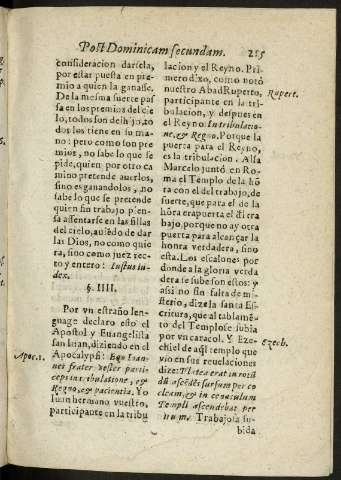 Post Dominicam secundam. 215
consideracion darsela,
por estar puesta en pre-
mio a quien la ganasse.
De la mesma suerte pas-
sa en los premios del cie
lo, todos son de hijo, to
dos los tiene en su ma-
no: pero como son pre
mios, no sabe lo que se
pide, quien por otro ca
mino pretende auerlos,
sino es ganandolos, no
sabe lo que se pretende
quien sin trabajo pien-
sa assentarse en las sillas
del cielo, auiēdo de dar
las Dios, no como quie
ra, sino como juez rec-
to y entero: Iustus iu-
dex.
§. IIII.
Por vn estraño len-
guage declaro esto el
Apostol y Euangelista
san Iuan, diziendo en el
Apoc. 1.
Apocalypsi: Ego Ioan-
nes frater vester parti-
ceps in tribulatione, &
Regno, & pacientia. Yo
Iuan hermano vuestro,
participante en la tribu
lacion y el Reyno. Pri-
mero dixo, como notò
nuestro Abad Ruperto,
Rupert.
participante en la tri-
bulacion, y despues en
el Reyno: In tribulatio-
ne, & Regno. Porque la
puerta para el Reyno,
es la tribulacion. Assi
Marcelo juntò en Ro-
ma el Templo de la hō
ra con el del trabajo, de
suerte, que para el de la
hōra era puerta el d̄l tra
bajo, porque no ay otra
puerta para alcançar la
honra verdadera, sino
esta. Los escalones por
donde a la gloria verda
dera se sube son estos: y
assi no sin falta de mi-
sterio, dize la santa Es-
critura, que al tablamē-
to del Templo se subia
por vn caracol. Y Eze-
Ezech.
chiel de aq̄l templo que
vio en sus reuelaciones
dize: Platea erat in rotū
dū ascedēs sursum per co
cleam, & in cœnaculum
Templi ascendebat per
gyrum. Trabajosa su-
bida